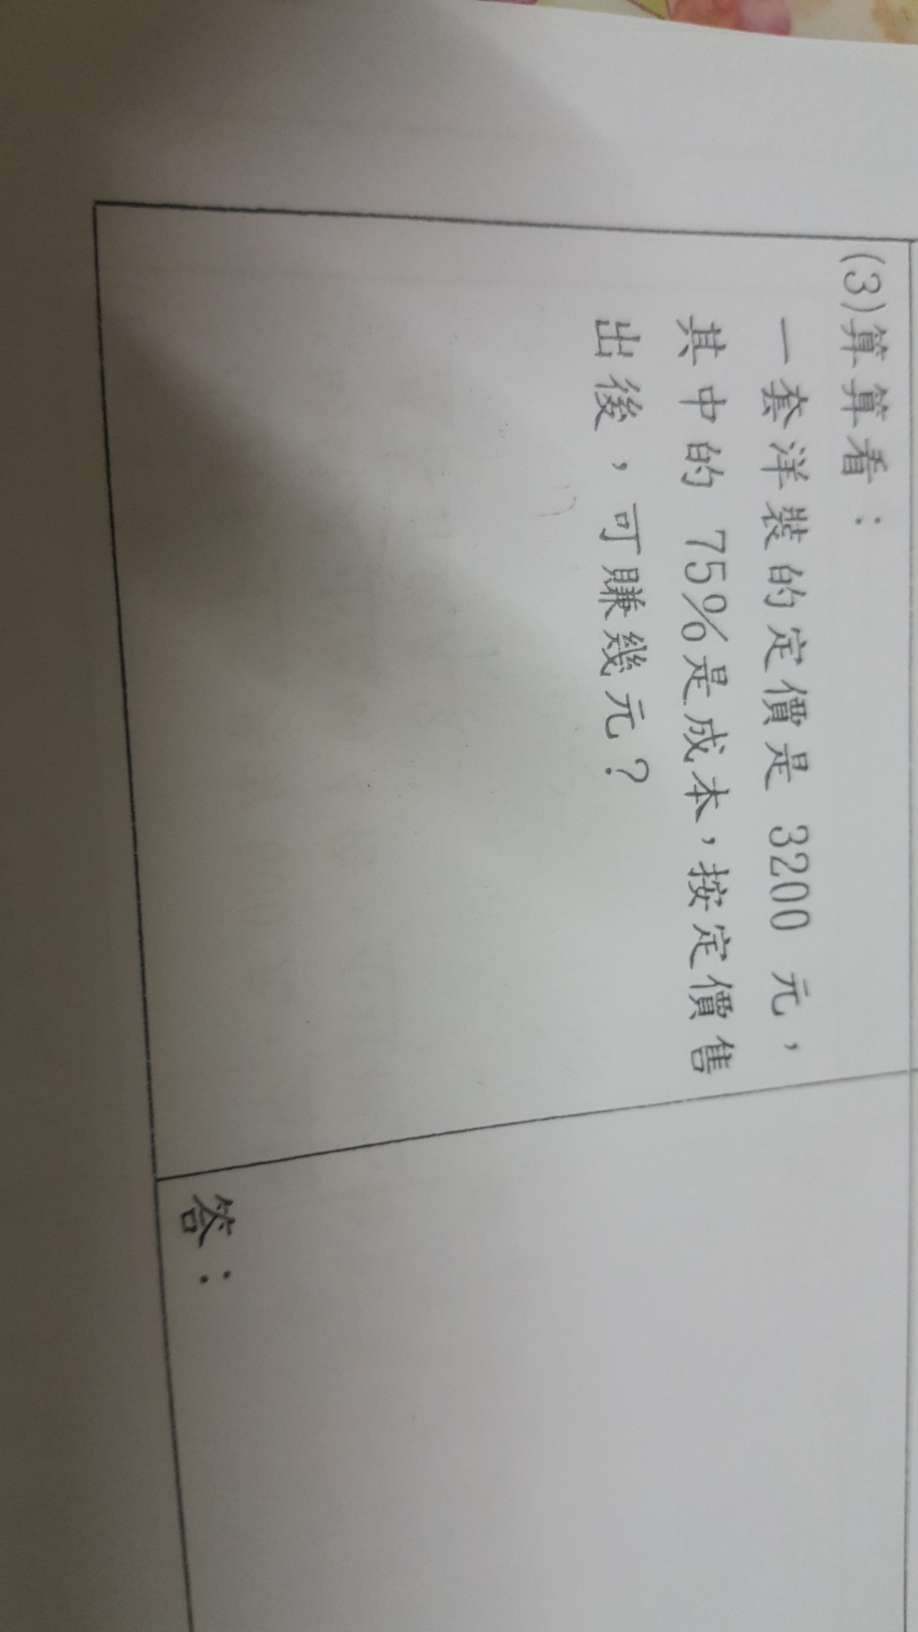 (3)算算看：
一套洋裝的定價是 3200 元，
其中的 75%是成本，按定價售
出後，可賺幾元？
答：